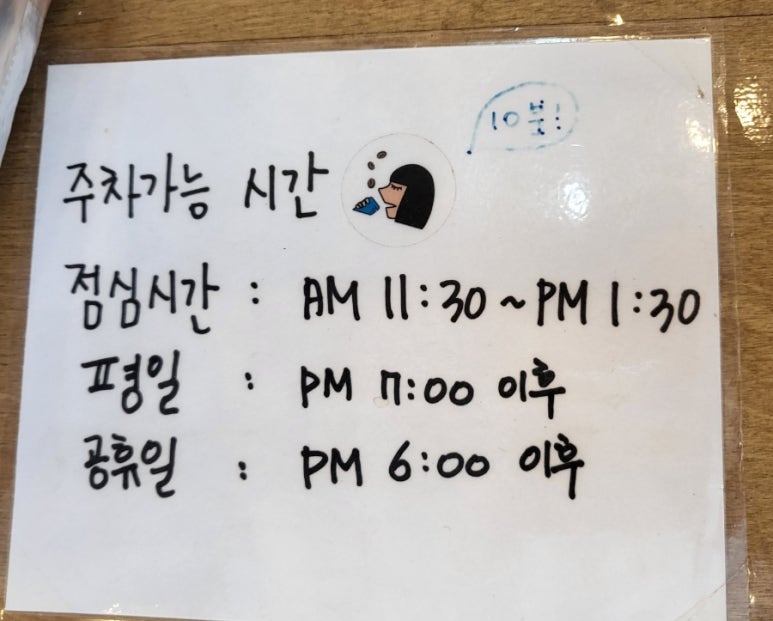 10분!
주차가능 시간
점심시간 : AM 11:30 ~ PM 1:30
평일 : PM 7:00 이후
공휴일 : PM 6:00 이후